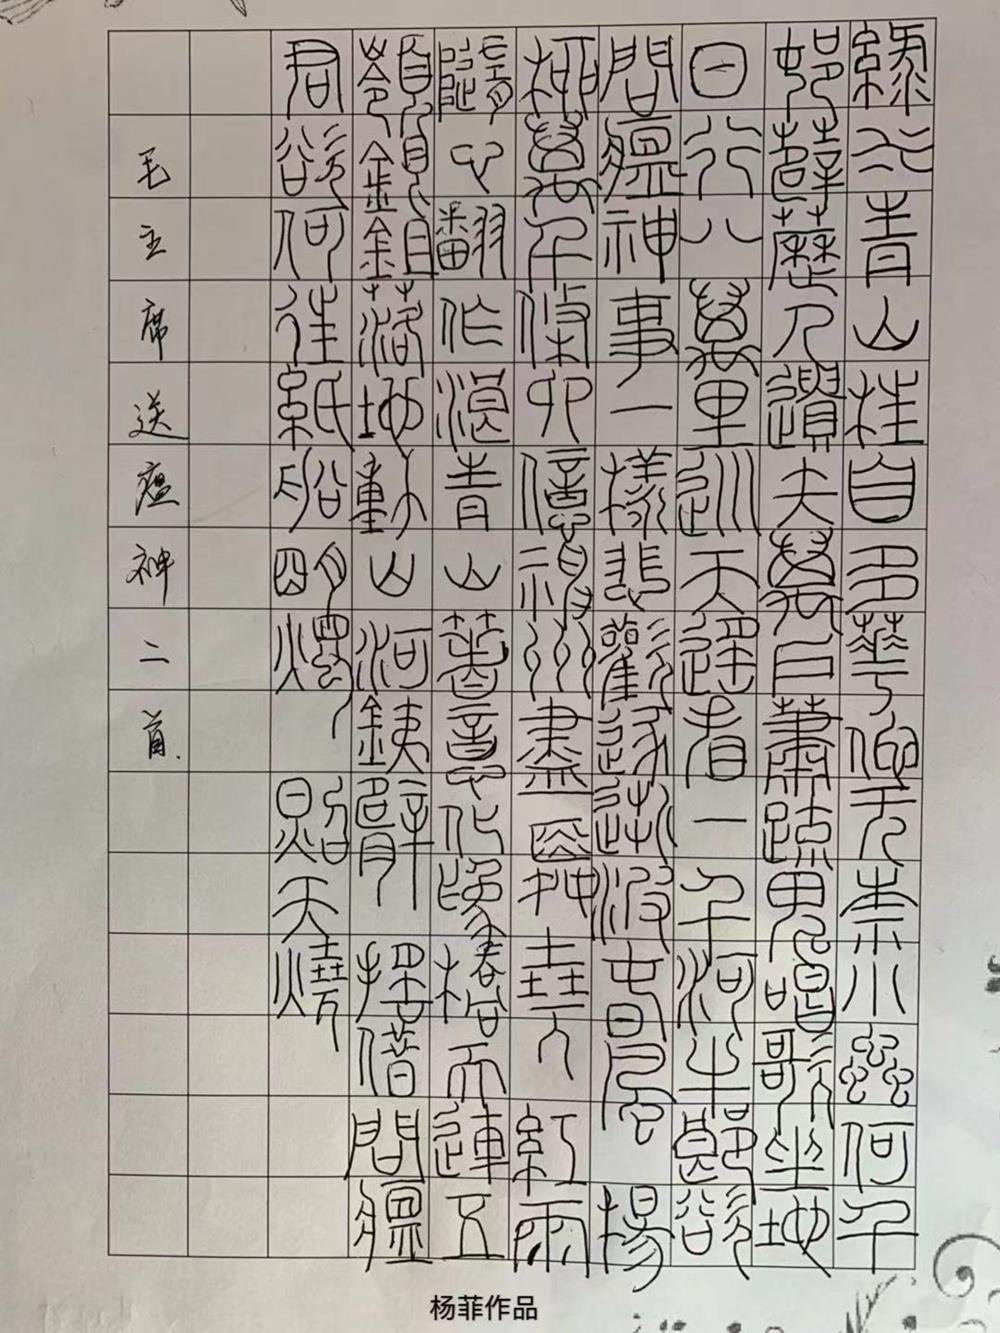 綠水青山枉自多華佗无奈小蟲何千
邨薜荔人遺矢萬戶蕭疏鬼唱歌坐地
日行八萬里巡天遥看一千河牛郎欲
問瘟神事一樣悲歡逐逝波春風楊
柳萬千條六億神州盡舜堯紅雨
隨心翻作浪青山著意化為橋天連五
嶺銀鋤落地動山河鐵臂摇借問瘟
君欲何往紙船明燭照天燒
毛主席送瘟神二首.
杨菲作品